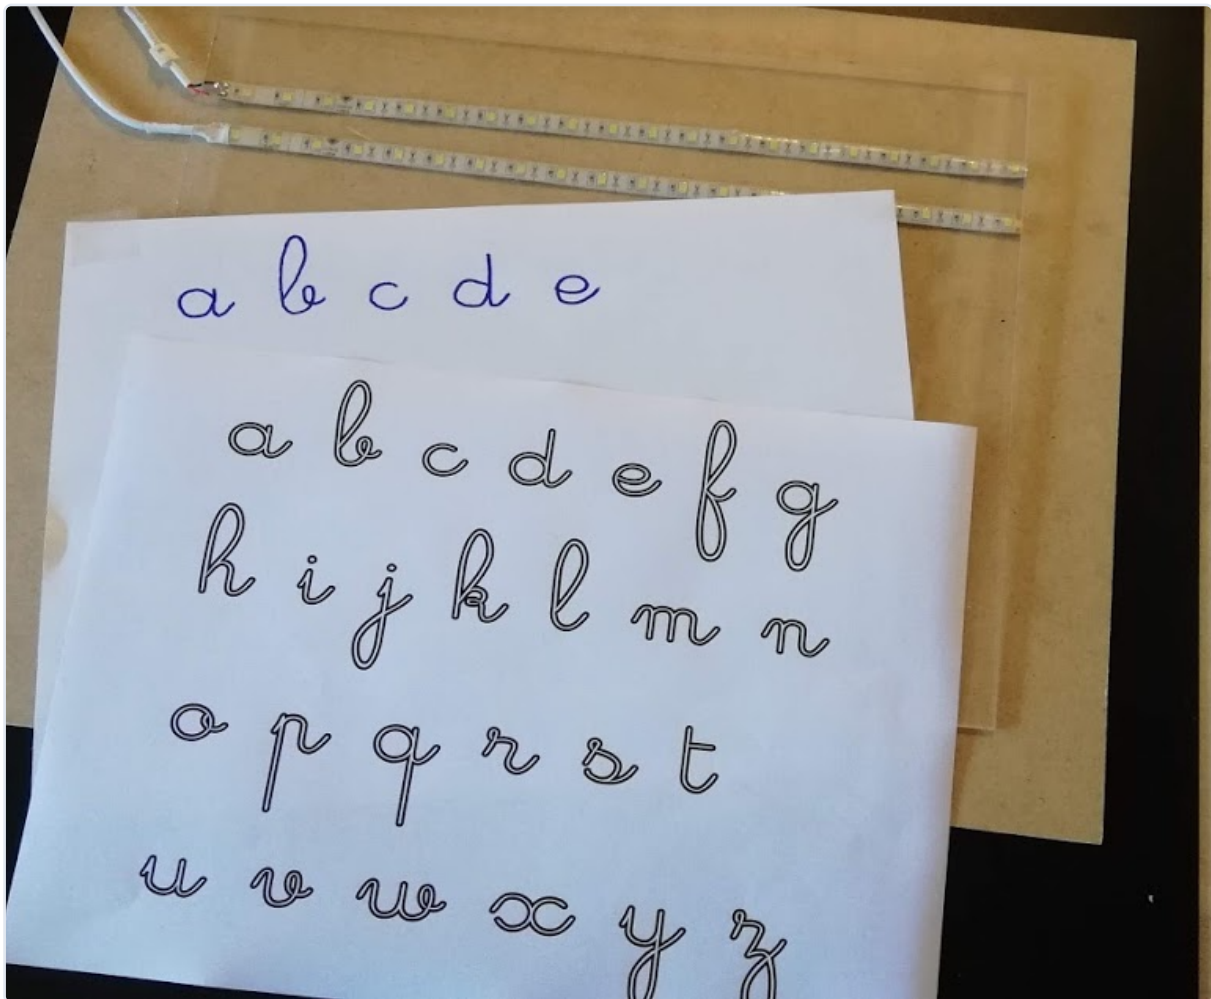 a b c d e
a b c d e f g
h i j k l m n
o p q r s t
u v w x y z